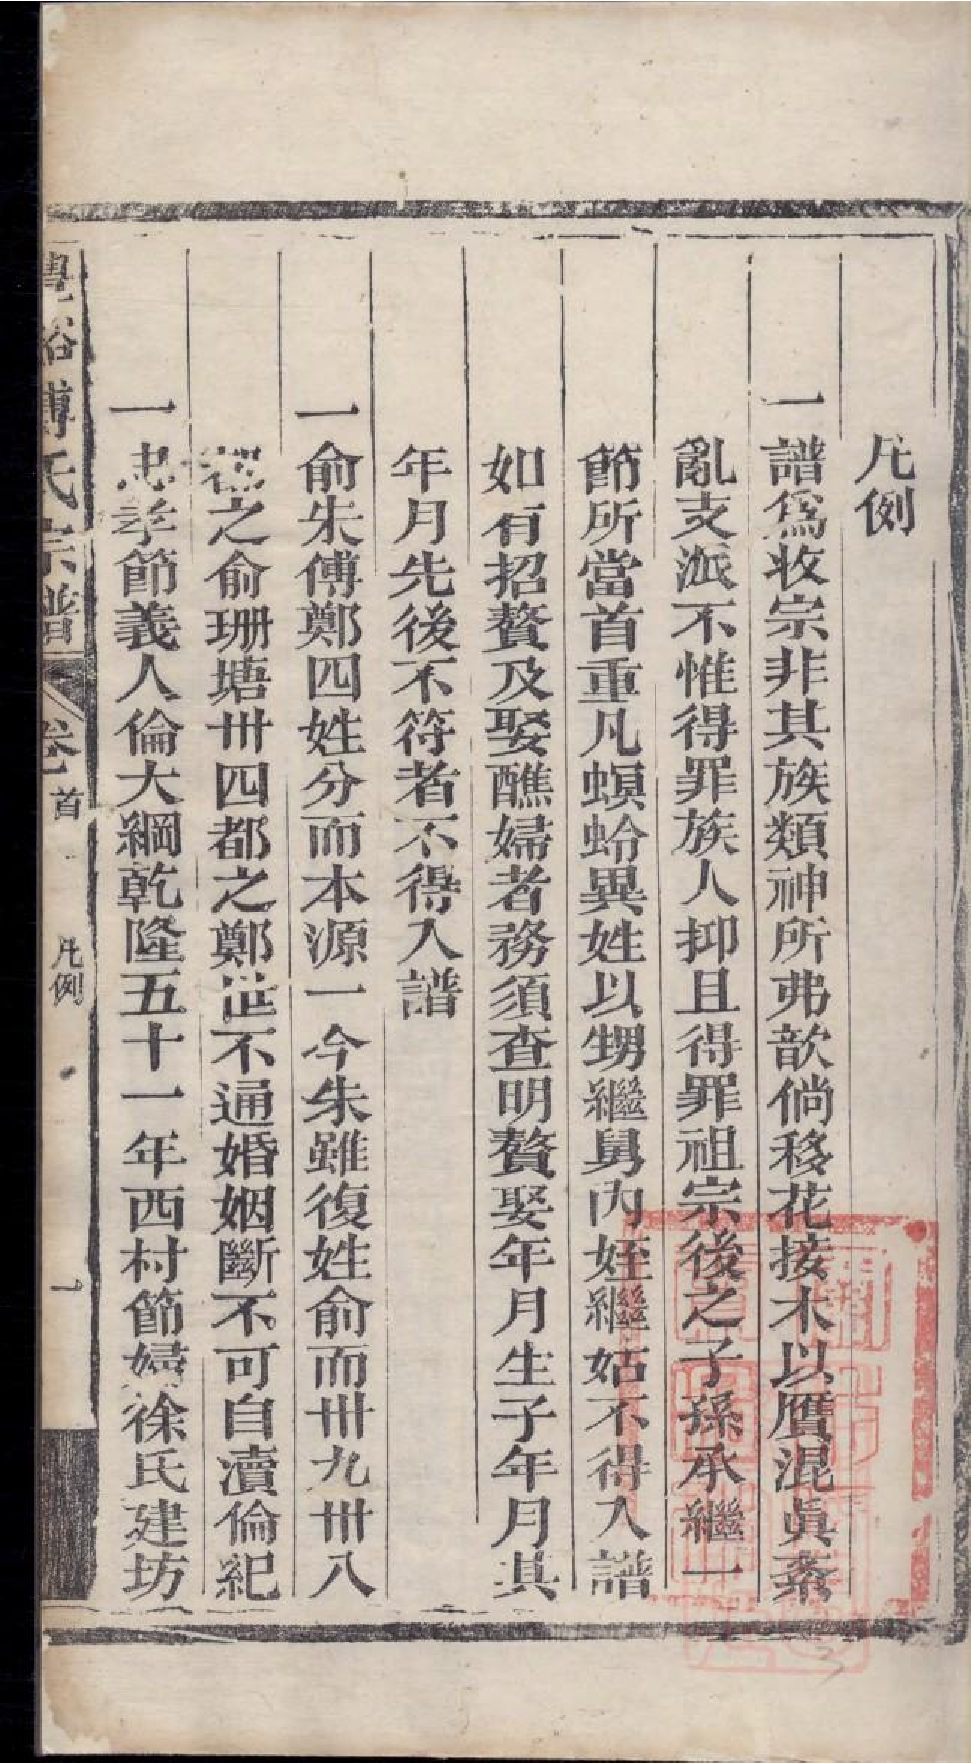 凡例
一譜爲收宗非其族類神所弗歆倘移花接木以贋混眞紊
亂支派不惟得罪族人抑且得罪祖宗後之子孫承繼一
節所當首重凡螟蛉異姓以甥繼舅內姪繼姑不得入譜
如有招贅及娶醮婦者務須查明贅娶年月生子年月其
年月先後不符者不得入譜
一俞朱傅鄭四姓分而本源一今朱雖復姓俞而卅九卅八
都之俞珊塘卅四都之鄭並不通婚姻斷不可自瀆倫紀
一忠孝節義人倫大綱乾隆五十一年西村節婦徐氏建坊
傅氏宗譜
卷首
凡例